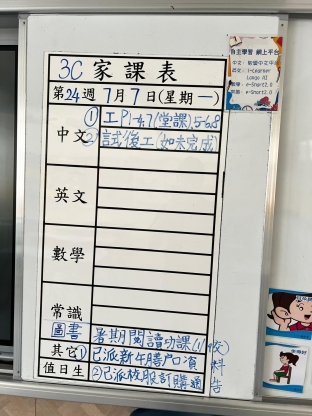 3C 家課表
第24週 7月7日(星期一)
中文 ①工P1-4,7(堂課),5-6,8
②試後工(如未完成)
英文
數學
常識
圖書 暑期閱讀功課(1/校)
其它 ①已派新午膳戶口資料
值日生 ②已派校服訂購通告
自主學習 網上平台
i-Learner
e-Smart2.0
e-Smart2.0